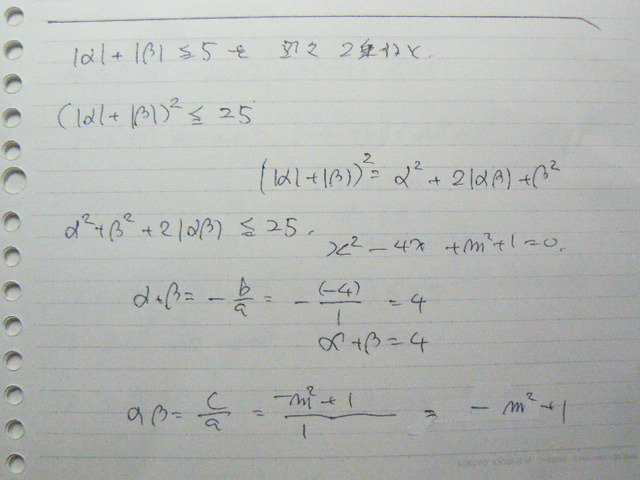 |α|+|β| ≦5 を 2乗
(|α|+|β|)² ≦ 25
(|α|+|β|)² = α² + 2|αβ| + β²
α²+β²+2|αβ| ≦ 25.
x² - 4x + m²+1=0.
α+β= - b/a = - (-4)/1 = 4
α+β=4
αβ= c/a = -m²+1/1 = -m²+1